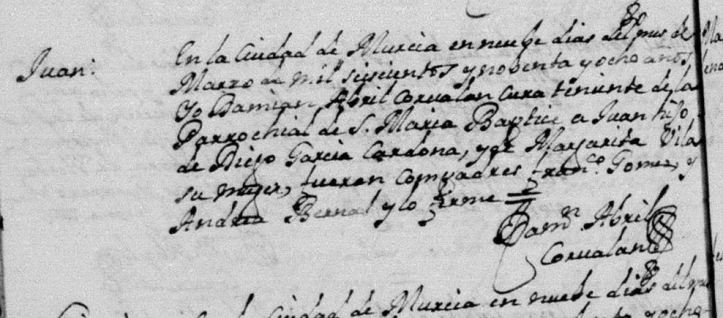 Juan:
En la Ciudad de Murcia en nuebe dias del mes de
Marzo de mil siscientos y nobenta y ocho años,
Yo Damian Abril Corualan Cura teniente de la
Parrochial de S. Maria Baptice a Juan hijo
de Diego Garcia Cardona, y de Margarita Vila
su muger, fueron Compadres Franco. Gomez, y
Andrea Bernal y lo firme
Damn. Abril
Corualan
Ciudad de Murcia en nuebe dias del